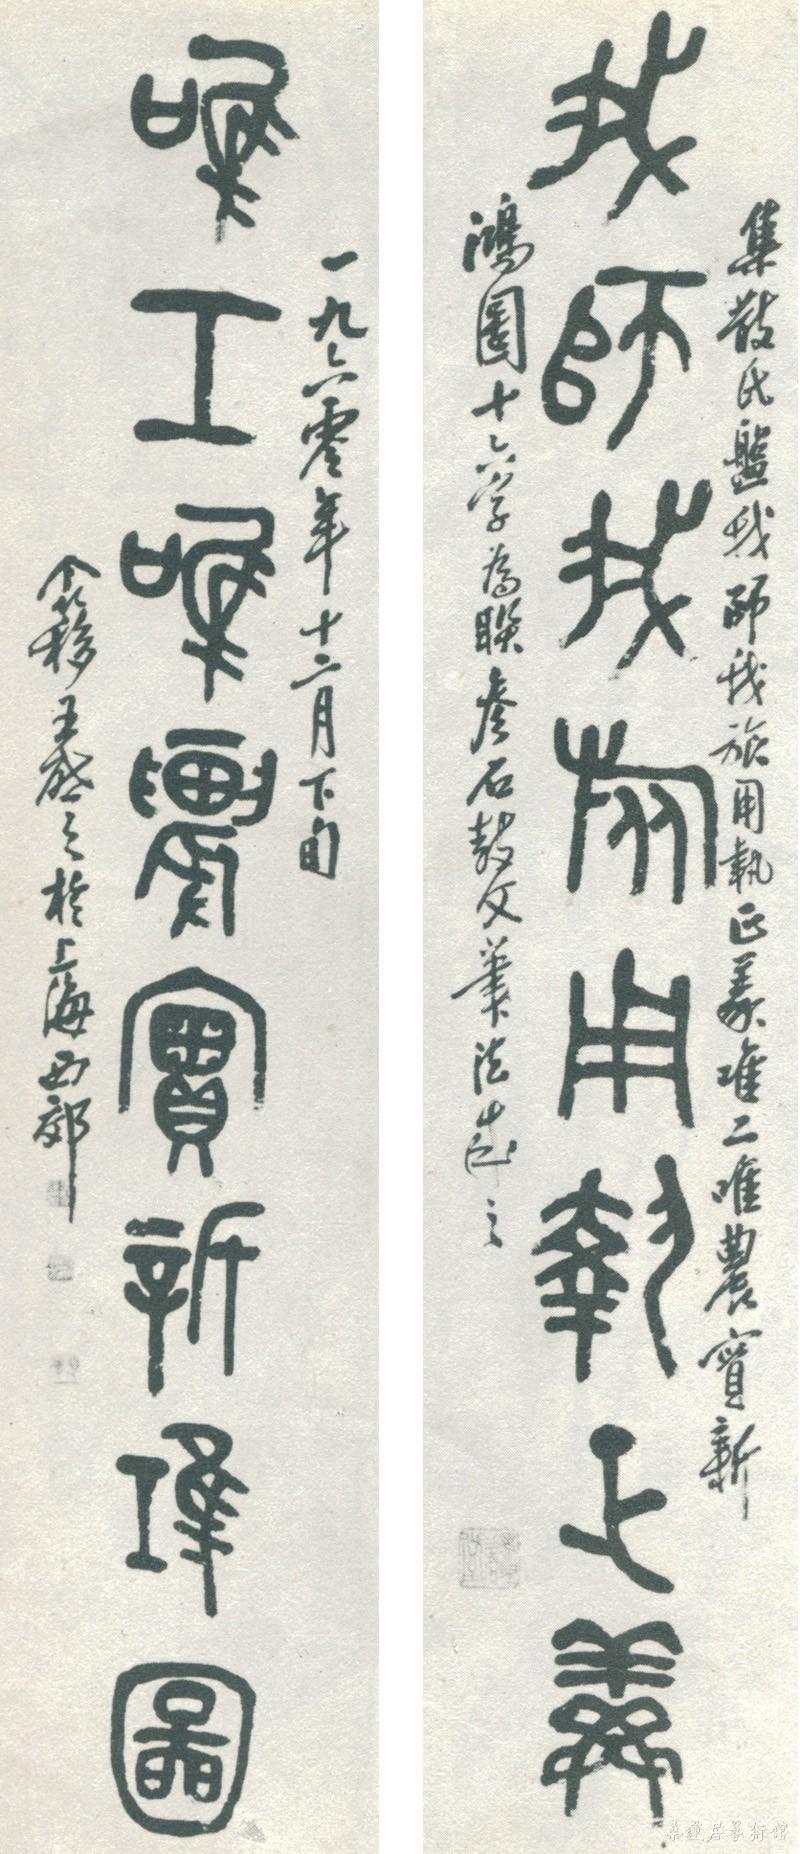 我師我旅用執正義
集散氏盤我師我旅用執正義唯工唯農寶新
鴻圖十六字為聯參石鼓文筆法成之
唯工唯農寶新鴻圖
一九六零年十二月下旬
个簃王啟之於上海西郊